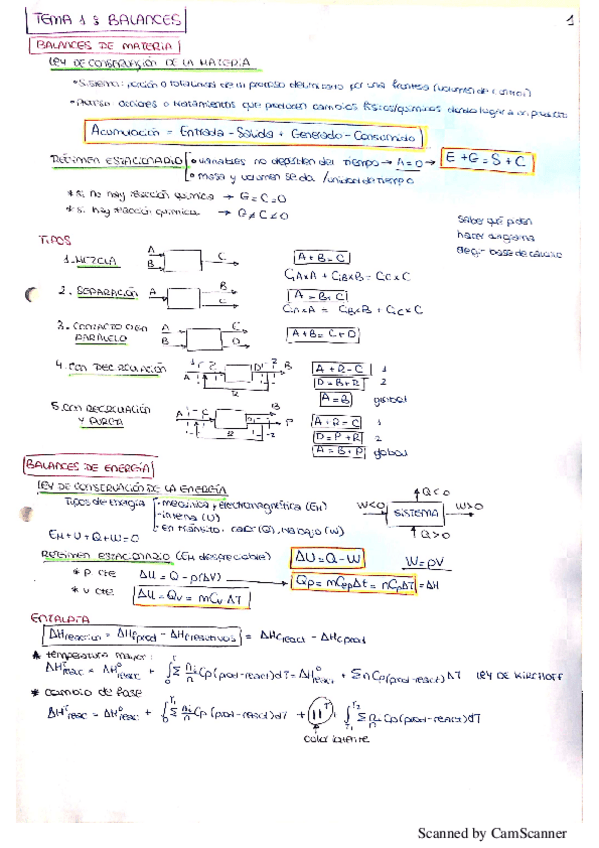 TEMA 1: BALANCES
1
BALANCES DE MATERIA
LEY DE CONSERVACIÓN DE LA MATERIA
*Sistema: porción o totalidad de un proceso delimitado por una frontera (volumen de control)
acciones o tratamientos que producen cambios físicos/químicos dando lugar a un producto
Acumulación = Entrada - Salida + Generado - Consumido
RÉGIMEN ESTACIONARIO variables no dependen del tiempo → A=0 → E+G=S+C
masa y volumen se da /unidad de tiempo
* si no hay reacción química → G=C=0
* si hay reacción química → G≠C≠0
Saber qué piden
hacer diagrama
elegir base de cálculo
TIPOS
1. MEZCLA A B C A+B=C
2. SEPARACIÓN A B C A=B+C
3. CONTACTO CON PARALELO A B C D A+B=C+D
4. CON RECIRCULACIÓN A B C D R A+R=C 1
D=B+R 2
A=B global
5. CON RECIRCULACIÓN A C B P R A+R=C 1
Y PURGA D=P+R 2
A=B+P global
BALANCES DE ENERGÍA
LEY DE CONSERVACIÓN DE LA ENERGÍA
Tipos de energía - mecánica y electromagnética (EM)
- interna (U)
- en tránsito: calor (Q), trabajo (W)
EM+U+Q+W=0
W<0 SISTEMA W>0
Q<0
Q>0
RÉGIMEN ESTACIONARIO (EM despreciable) ΔU=Q-W W=pV
* p cte ΔU=Q-p(ΔV) → Qp=mCpΔt=nCpΔT =ΔH
* v cte ΔU=Qv=mCvΔT
ENTALPÍA
ΔHreacción = ΔHfprod - ΔHfreactivos = ΔHcreact - ΔHcprod
* temperatura mayor:
LEY DE KIRCHOFF
* cambio de fase
calor latente
Scanned by CamScanner